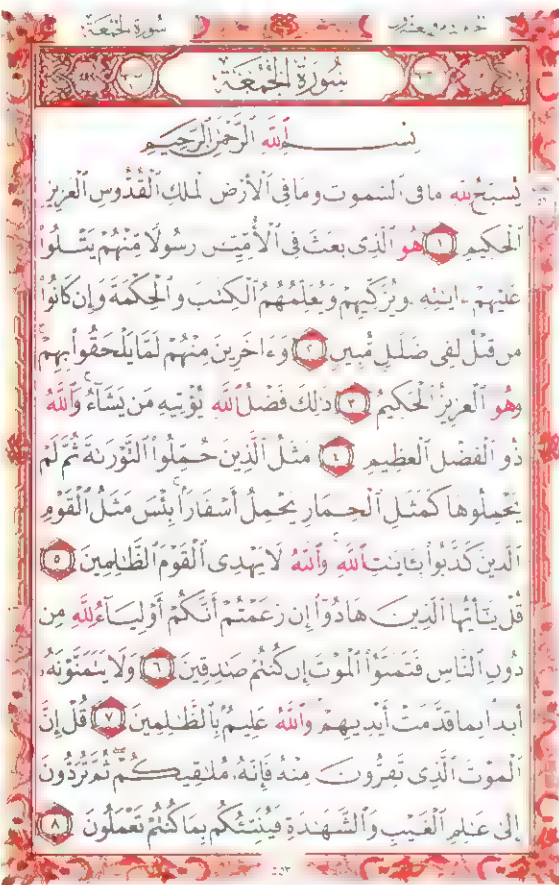 سُورَةُ الْجُمُعَةِ
سُورَةُ الْجُمُعَةِ
بِسْمِ ٱللَّهِ ٱلرَّحْمَٰنِ ٱلرَّحِيمِ
يُسَبِّحُ لِلَّهِ مَا فِي ٱلسَّمَٰوَٰتِ وَمَا فِي ٱلْأَرْضِ ٱلْمَلِكِ ٱلْقُدُّوسِ ٱلْعَزِيزِ
ٱلْحَكِيمِ ١ هُوَ ٱلَّذِي بَعَثَ فِي ٱلْأُمِّيِّـۧنَ رَسُولًا مِّنْهُمْ يَتْلُوا۟
عَلَيْهِمْ ءَايَٰتِهِۦ وَيُزَكِّيهِمْ وَيُعَلِّمُهُمُ ٱلْكِتَٰبَ وَٱلْحِكْمَةَ وَإِن كَانُوا۟
مِن قَبْلُ لَفِي ضَلَٰلٍ مُّبِينٍ ٢ وَءَاخَرِينَ مِنْهُمْ لَمَّا يَلْحَقُوا۟ بِهِمْ ۚ
وَهُوَ ٱلْعَزِيزُ ٱلْحَكِيمُ ٣ ذَٰلِكَ فَضْلُ ٱللَّهِ يُؤْتِيهِ مَن يَشَآءُ ۚ وَٱللَّهُ
ذُو ٱلْفَضْلِ ٱلْعَظِيمِ ٤ مَثَلُ ٱلَّذِينَ حُمِّلُوا۟ ٱلتَّوْرَىٰةَ ثُمَّ لَمْ
يَحْمِلُوهَا كَمَثَلِ ٱلْحِمَارِ يَحْمِلُ أَسْفَارًۢا ۚ بِئْسَ مَثَلُ ٱلْقَوْمِ
ٱلَّذِينَ كَذَّبُوا۟ بِـَٔايَٰتِ ٱللَّهِ ۚ وَٱللَّهُ لَا يَهْدِي ٱلْقَوْمَ ٱلظَّٰلِمِينَ ٥
قُلْ يَٰٓأَيُّهَا ٱلَّذِينَ هَادُوٓا۟ إِن زَعَمْتُمْ أَنَّكُمْ أَوْلِيَآءُ لِلَّهِ مِن
دُونِ ٱلنَّاسِ فَتَمَنَّوُا۟ ٱلْمَوْتَ إِن كُنتُمْ صَٰدِقِينَ ٦ وَلَا يَتَمَنَّوْنَهُۥٓ
أَبَدًۢا بِمَا قَدَّمَتْ أَيْدِيهِمْ ۚ وَٱللَّهُ عَلِيمٌۢ بِٱلظَّٰلِمِينَ ٧ قُلْ إِنَّ
ٱلْمَوْتَ ٱلَّذِي تَفِرُّونَ مِنْهُ فَإِنَّهُۥ مُلَٰقِيكُمْ ۖ ثُمَّ تُرَدُّونَ
إِلَىٰ عَٰلِمِ ٱلْغَيْبِ وَٱلشَّهَٰدَةِ فَيُنَبِّئُكُم بِمَا كُنتُمْ تَعْمَلُونَ ٨